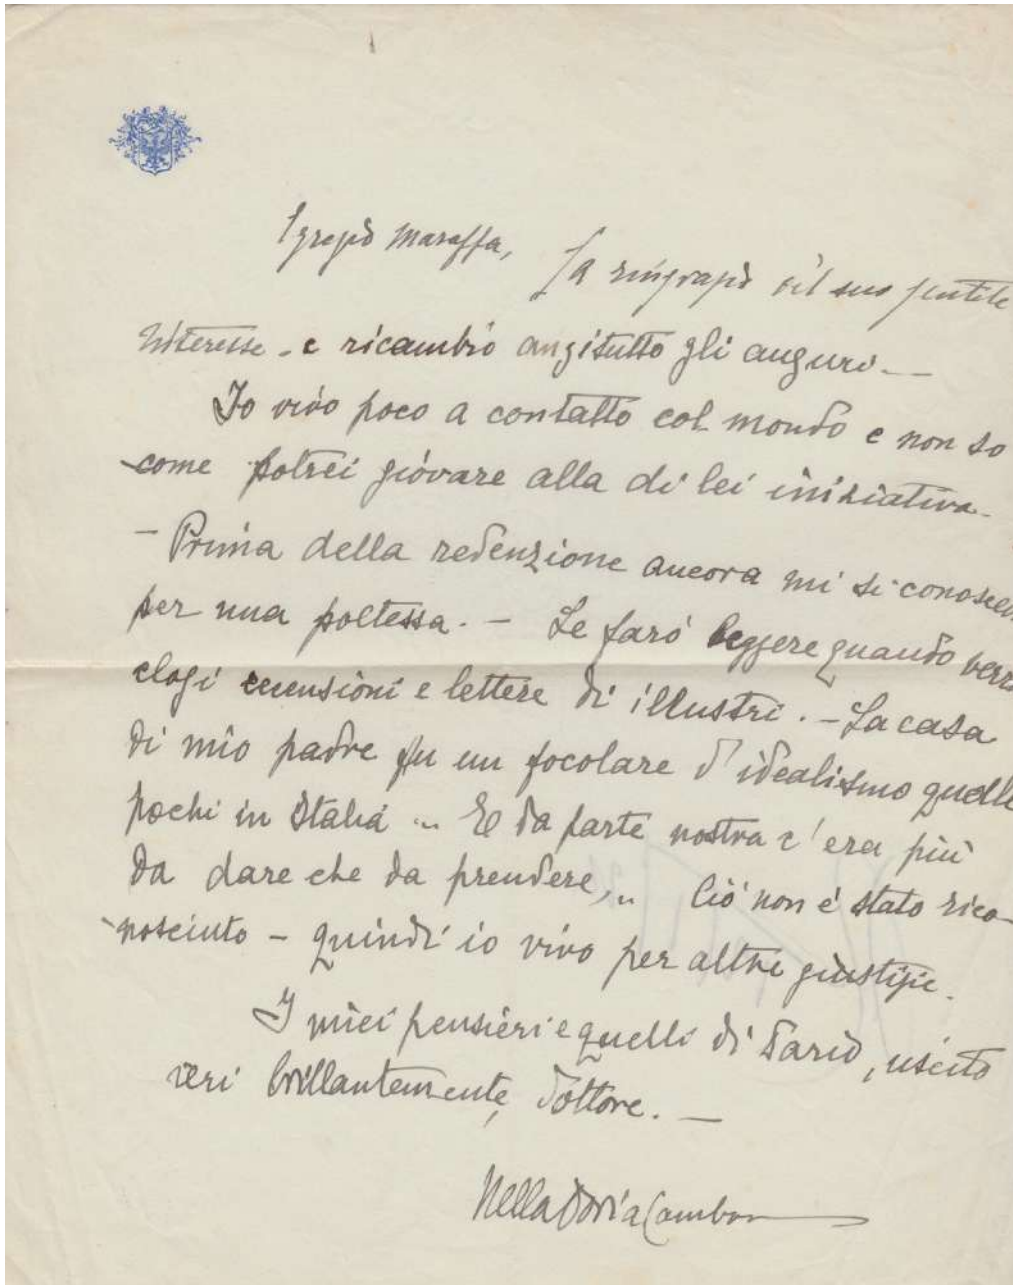 Egregio Maraffa,
La ringrazio del suo gentile
interesse - e ricambio anzitutto gli auguri --
Io vivo poco a contatto col mondo e non so
come potrei giovare alla di lei iniziativa -
- Prima della redenzione ancora mi si conosceva
per una poetessa. - Le farò leggere quando verrà
elogi recensioni e lettere di illustri. - La casa
di mio padre fu un focolare d'idealismo
pochi in Italia ... E da parte nostra c'era più
da dare che da prendere, .. Ciò non è stato rico-
nosciuto - quindi io vivo per altre
I miei pensieri e quelli di Dario, uscito
ieri brillantemente, dottore. -
Nella Doria Cambon